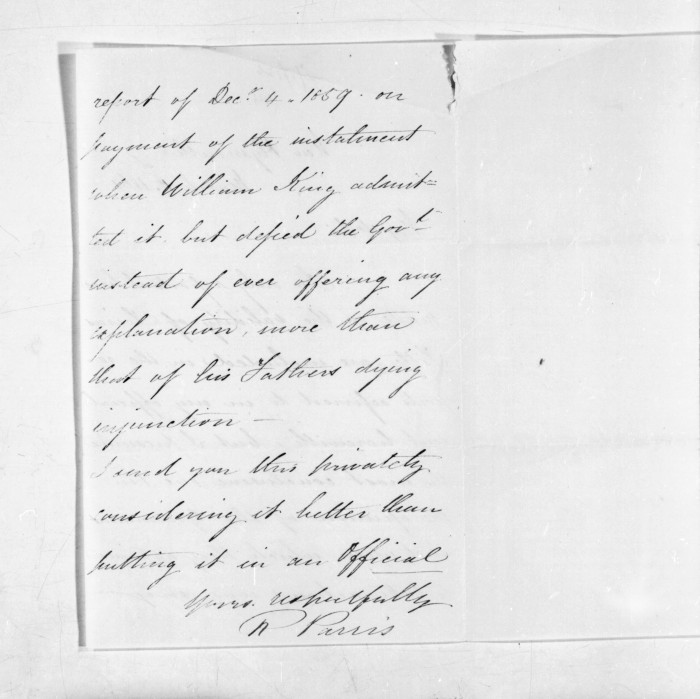 report of Decr. 4. 1859. on
payment of the instalment
when William King admit=
ted it. but defied the Govt.
instead of ever offering any
explanation, more than
that of his Fathers dying
injunction —
I send you this privately
considering it better than
putting it in an Official
Yours. respectfully
R Parris